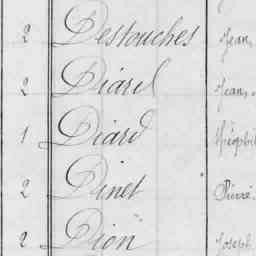 2 Destouches Jean,
2 Diard Jean,
1 Diard Théophil
2 Dinet Pierre.
2 Dion Joseph